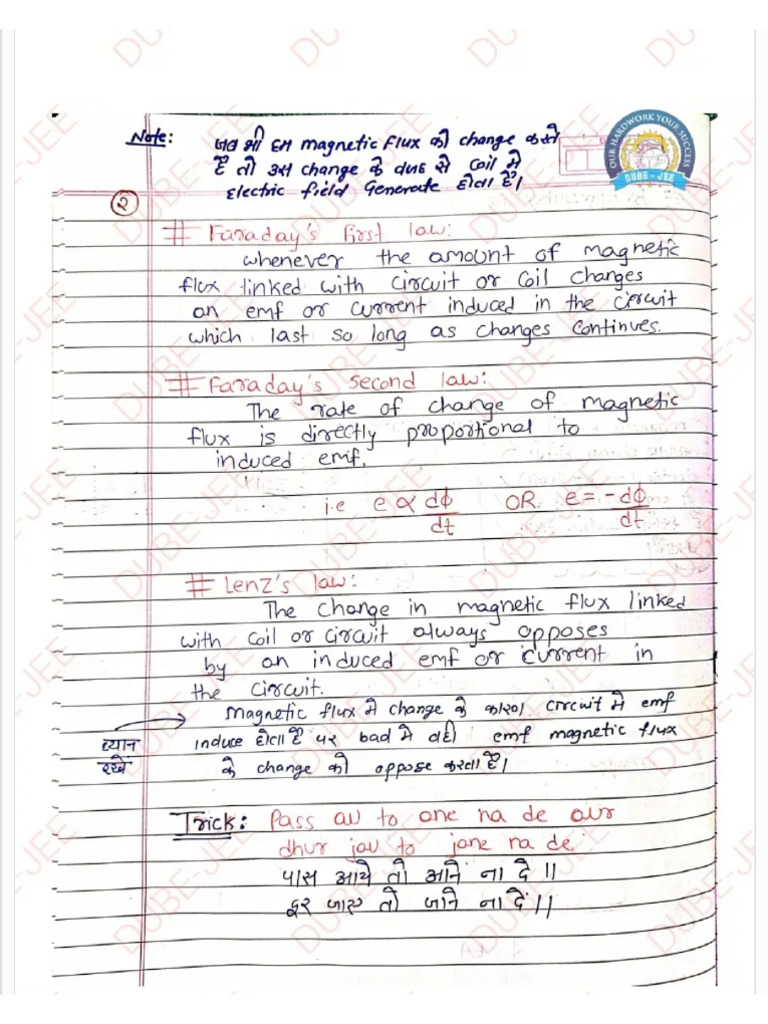 Note: जब भी हम magnetic flux को change करते
है तो उस change के due से coil मे
Electric field Generate होता है।
OUR HARDWORK YOUR SUCCESS
DUBE - JEE
२
# Faraday's first law:
whenever the amount of magnetic
flux linked with circuit or coil changes
an emf or current induced in the circuit
which last so long as changes continues.
# Faraday's second law:
The rate of change of magnetic
flux is directly proportional to
induced emf.
i.e e ∝ dϕ/dt OR e = -dϕ/dt
# Lenz's law:
The change in magnetic flux linked
with coil or circuit always opposes
by an induced emf or current in
the circuit.
magnetic flux मे change के कारण circuit मे emf
ध्यान induce होता है पर bad मे वही emf magnetic flux
रखे के change को oppose करता है।
Trick: Pass au to ane na de aur
dhur jau to jane na de.
पास आये तो आने ना दे॥
दूर जाए तो जाने ना दे॥
DUBE-JEE